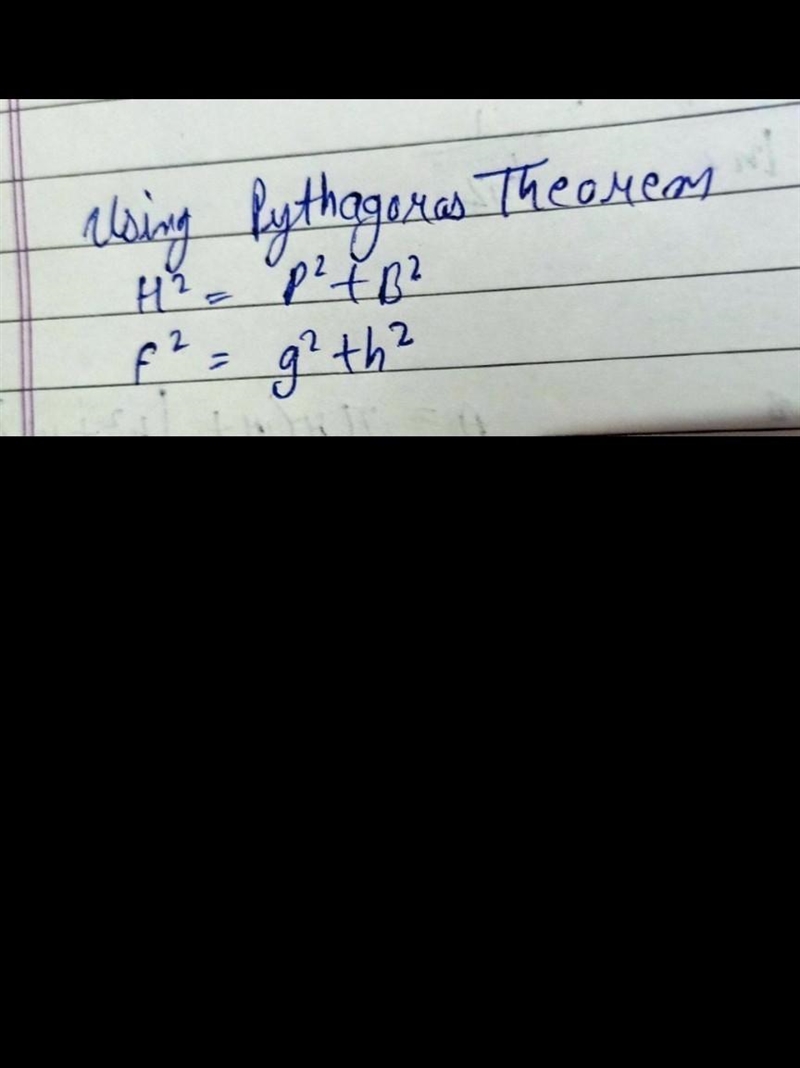 Using Pythagoras Theorem
H² = P² + B²
F² = g² + h²